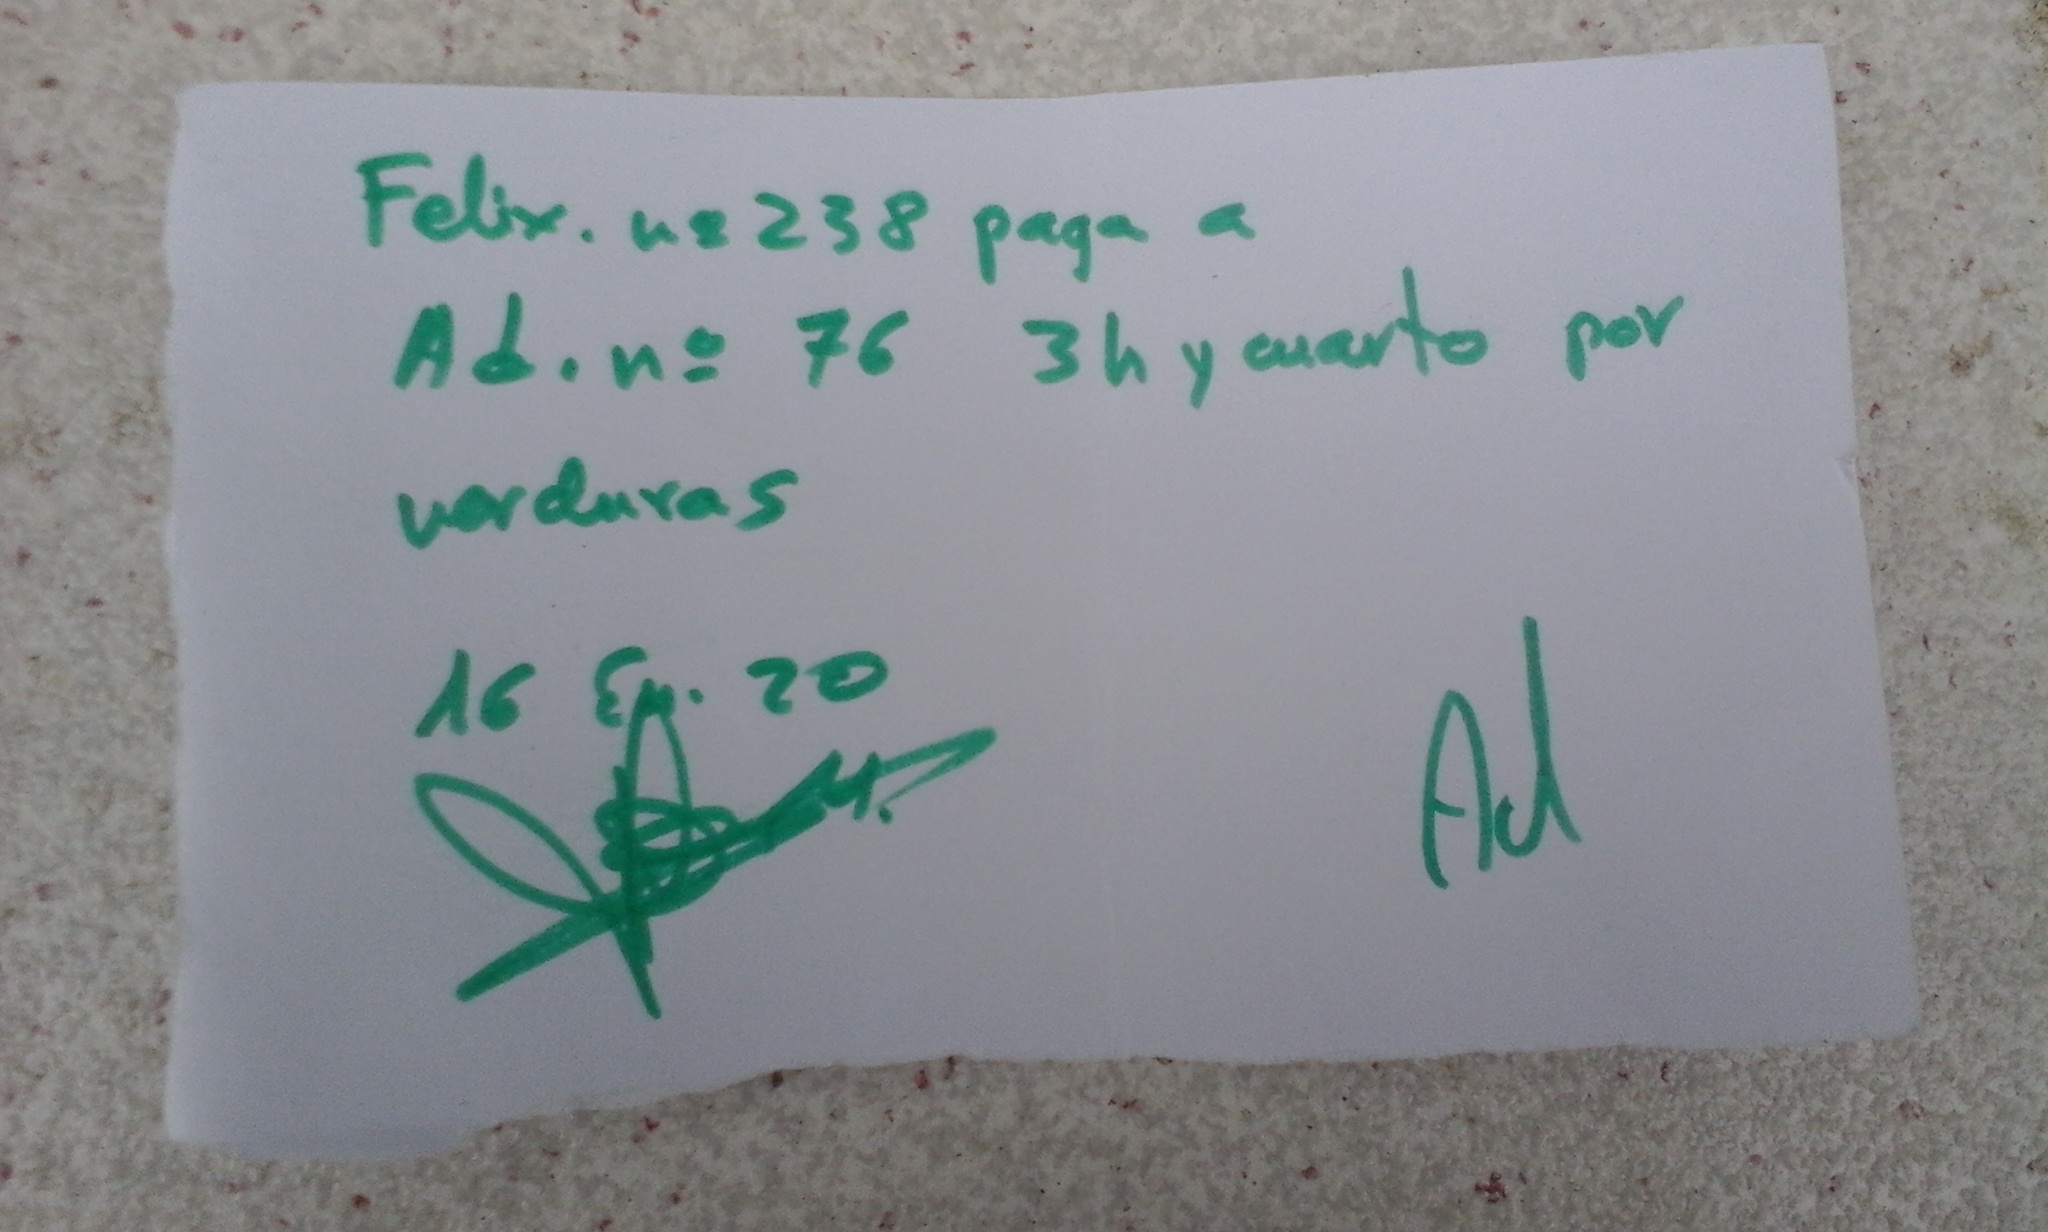 Felix. nº 238 paga a
Ad. nº 76 3h y cuarto por
verduras
16 En. 20
Ad